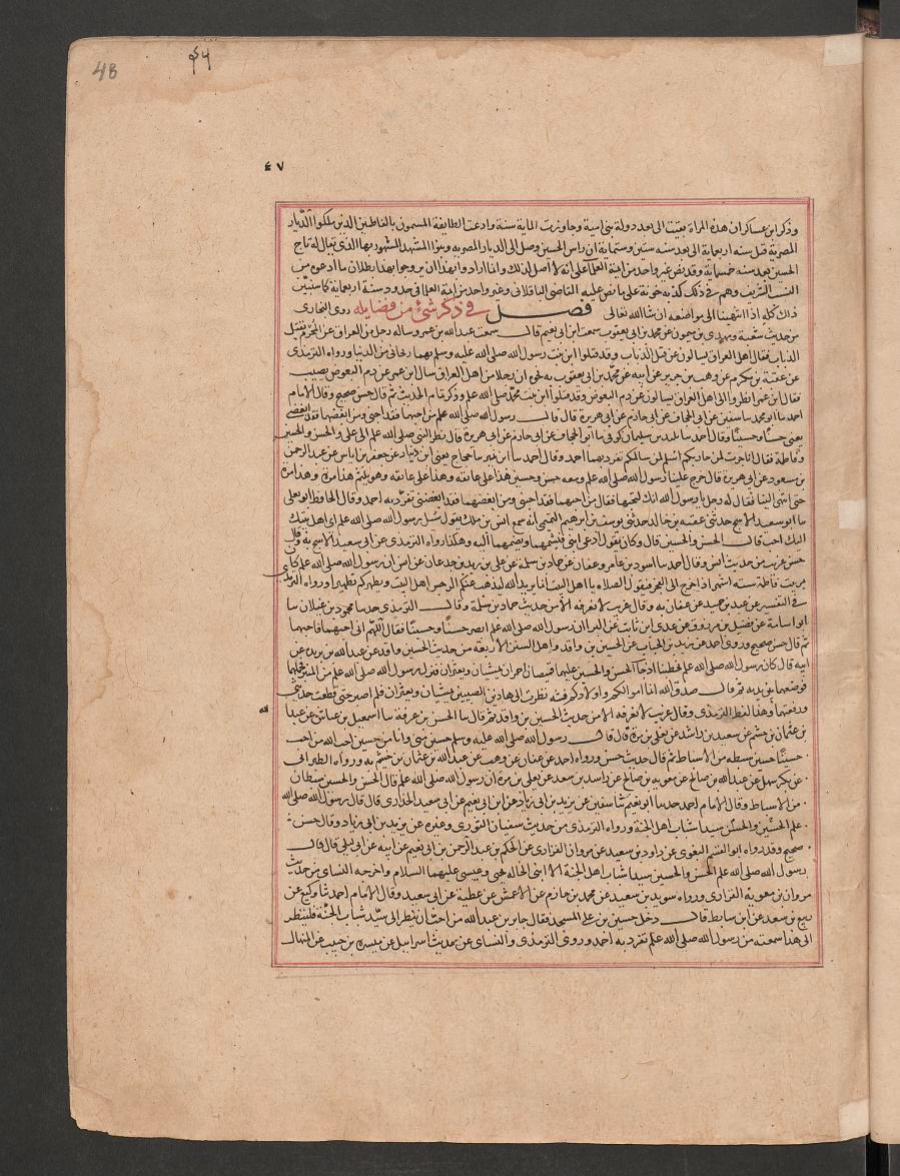 48
٤٧
وذكر ابن عساكر ان هذه المراة بقيت الى بعد دولة بني امية وجاوزت الماية سنة وادعت الطايفة المسمون بالفاطميين الذين ملكوا الديار
المصرية قبل سنه اربعماية الى بعد سنه ستين وستماية ان راس الحسين وصل الى الديار المصريه وبنوا المشهد المشهور بها الذي يقال له تاج
الحسين بعد سنه خمسماية وقد نص غير واحد من ايمة العلم على انه لا اصل لذلك وانما ارادوا بهذا ان يروجوا بهذا بطلان ما ادعوه من
النسب الشريف وهم في ذلك كذبه خونة على ما نص عليه القاضي الباقلاني وغير واحد من ايمة العلما في حدود سنة اربعماية كما سنبين
ذلك كله اذا انتهينا الى مواضعه ان شا الله تعالى فصل في ذكر شئ من فضايله روى البخاري
من حديث شعبة ومهدي بن ميمون عن محمد بن ابي يعقوب سمعت ابن ابي نعيم قال سمعت عبد الله بن عمر وساله رجل من العراق عن المحرم يقتل
الذباب فقال اهل العراق يسالون عن قتل الذباب وقد قتلوا ابن بنت رسول الله صلى الله عليه وسلم هما ريحاني من الدنيا ورواه الترمذي
عن عقبة بن مكرم عن وهب بن جرير عن ابيه عن محمد بن ابي يعقوب به نحوه ان رجلا من اهل العراق سال ابن عمر عن دم البعوض يصيب
فقال ابن عمر انظروا الى اهل العراق يسالون عن دم البعوض وقد قتلوا ابن بنت محمد صلى الله علم وذكر تمام الحديث ثم قال حسن صحيح وقال الامام
احمد سا ابو محمد سا سفين عن ابي الجحاف عن ابي حازم عن ابي هريرة قال قال رسول الله صلى الله علم من احبهما فقد احبني ومن ابغضهما فقد ابغضني
يعني حسنا وحسينا وقال احمد سا تليد بن سليمان كوفي سا ابو الجحاف عن ابي حازم عن ابي هريرة قال نظر النبي صلى الله علم الى علي والحسن والحسين
وفاطمة فقال انا حرب لمن حاربكم سلم لمن سالمكم تفرد بهما احمد وقال احمد سا ابن نمير سا حجاج يعني ابن دينار عن جعفر بن اياس عن عبد الرحمن
بن مسعود عن ابي هريرة قال خرج علينا رسول الله صلى الله علم ومعه حسن وحسين هذا على عاتقه وهذا على عاتقه وهو يلثم هذا مرة وهذا مرة
حتى انتهى الينا فقال له رجل يا رسول الله انك لتحبهما فقال من احبهما فقد احبني ومن ابغضهما فقد ابغضني تفرد به احمد وقال الحافظ ابو يعلى
سا ابو سعيد الاشج حدثني عقبه بن خالد حدثني يوسف بن ابرهيم التميمي انه سمع انس بن ملك يقول سئل رسول الله صلى الله علم اي اهل بيتك
اليك احب قال الحسن والحسين قال وكان يقول ادعي ابني فيشمهما ويضمهما اليه وهكذا رواه الترمذي عن ابي سعيد الاشج به وقال
حسن غريب من حديث انس وقال احمد سا اسود بن عامر وعفان عن حماد بن سلمة عن علي بن زيد بن جدعان عن انس ان رسول الله صلى الله علم كان
يمر ببيت فاطمة سته اشهر اذا خرج الى الفجر فيقول الصلاه يا اهل البيت انما يريد الله ليذهب عنكم الرجس اهل البيت ويطهركم تطهيرا ورواه الترمذي
في التفسير عن عبد بن حميد عن عفان به وقال غريب لا نعرفه الا من حديث حماد بن سلمة وقال الترمذي حدسا محمود بن غيلان سا
ابو اسامة عن فضيل بن مرزوق عن عدي ابن ثابت عن البرا ان رسول الله صلى الله علم ابصر حسنا وحسينا فقال اللهم اني احبهما فاحبهما
ثم قال حسن صحيح وروى احمد عن زيد بن الحباب عن الحسين بن واقد واهل السنن الاربعه من حديث الحسين واقد عن عبد الله بن بريده عن
ابيه قال كان رسول الله صلى الله علم يخطبنا اذ جا الحسن والحسين عليهما قميصان احمران يمشيان ويعثران فنزل رسول الله صلى الله علم من المنبر فحملهما
فوضعهما بين يديه ثم قال صدق الله انما اموالكم واولادكم فتنه نظرت الى هاذين الصبيين يمشيان ويعثران فلم اصبر حتى قطعت حديثي
ورفعتهما وهذا لفظ الترمذي وقال غريب لا نعرفه الا من حديث الحسين بن واقد ثم قال سا الحسن بن عرفة سا اسمعيل بن عياش عن عبد الله
بن عثمان بن خثيم عن سعيد بن راشد عن يعلى بن مرة قال قال رسول الله صلى الله عليه وسلم حسين مني وانا من حسين احب الله من احب
حسينا حسين سبط من الاسباط ثم قال حديث حسن ورواه احمد عن عفان عن وهب عن عبد الله بن عثمان بن خثيم به ورواه الطبراني
عن بكر بن سهل عن عبد الله بن صالح عن معويه بن صالح عن راشد بن سعد عن يعلى بن مرة ان رسول الله صلى الله علم قال الحسن والحسين سبطان
من الاسباط وقال الامام احمد حدسا ابو نعيم سا سفين عن يزيد بن ابي زياد عن ابن ابي نعيم عن ابي سعيد الخدري قال قال رسول الله صلى الله
علم الحسن والحسين سيدا شباب اهل الجنة ورواه الترمذي من حديث سفيان الثوري وغيره عن يزيد بن ابي زياد وقال حسن
صحيح وقد رواه ابو القسم البغوي عن داود بن سعيد عن مروان الفزاري عن الحكم بن عبد الرحمن بن ابي نعيم عن ابيه عن ابي ليلى قال قال
رسول الله صلى الله علم الحسن والحسين سيدا شباب اهل الجنة الا ابني الخالة يحيى وعيسى عليهما السلام واخرجه النساي من حديث
مروان بن معوية الفزاري ورواه سويد بن سعيد عن محمد بن حازم عن الاعمش عن عطية عن ابي سعيد وقال الامام احمد سا وكيع عن
ربيع بن سعد عن ابن سابط قال دخل حسين بن علي المسجد فقال جابر بن عبد الله من احب ان ينظر الى سيد شباب الجنة فلينظر
الى هذا سمعته من رسول الله صلى الله علم تفرد به احمد وروى الترمذي والنساي عن حديث اسراييل عن ميسره بن حبيب عن المنهال